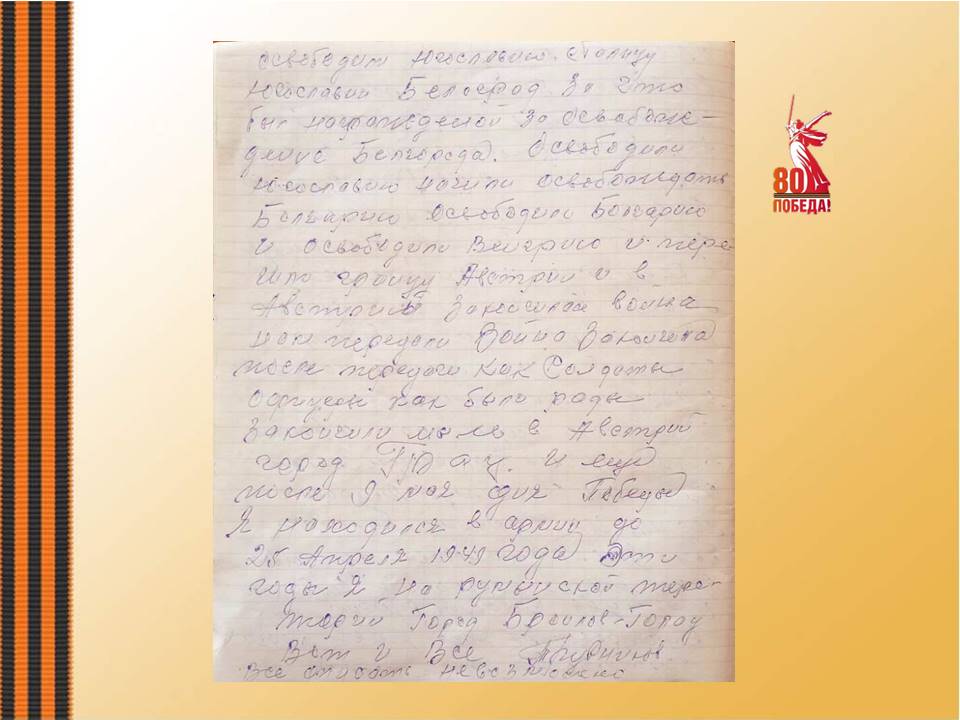 освободили Югославию столицу
Югославии Белоград За это
был награжденой за Освобож-
дение Белгорода). Освободили
Югославию начили освобождать
Болгарию Освободили Болгарию
и освободили Венгрию и пере
шли границу Австрии и в
Австрий Закончиной война
нам передали Война Закончена
после передачи как Солдаты
офицеры как были рады
Закончили мы в Австрий
город и ещё
после 9 мая дня Победы
Я находился в армии до
25 Апреля 1949 года Эти
годы Я на румынской тере-
тории Город Браилов-Голац
Вот и Все
Все описать невозможно
80
ПОБЕДА!